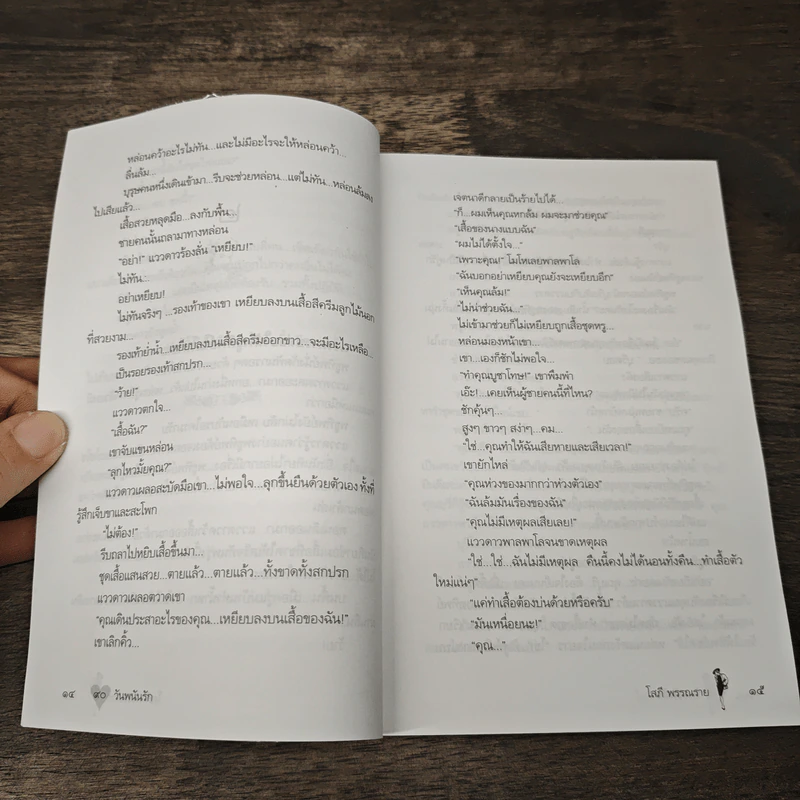 หล่อนคว้าอะไรไม่ทัน...และไม่มีอะไรจะให้หล่อนคว้า...
ลื่นล้ม...
บุรุษคนหนึ่งเดินเข้ามา...รีบจะช่วยหล่อน...แต่ไม่ทัน...หล่อนล้มลง
ไปเสียแล้ว...
เสื้อสวยหลุดมือ...ลงกับพื้น...
ชายคนนั้นถลามาทางหล่อน
“อย่า!” แววดาวร้องลั่น “เหยียบ!”
ไม่ทัน...
อย่าเหยียบ!
ไม่ทันจริงๆ ...รองเท้าของเขา เหยียบลงบนเสื้อสีครีมลูกไม้นอก
ที่สวยงาม...
รองเท้าย่ำน้ำ...เหยียบลงบนเสื้อสีครีมออกขาว...จะมีอะไรเหลือ...
เป็นรอยรองเท้าสกปรก...
“ว้าย!”
แววดาวตกใจ...
“เสื้อฉัน?”
เขาจับแขนหล่อน
“ลุกไหวมั้ยคุณ?”
แววดาวเผลอสะบัดมือเขา...ไม่พอใจ...ลุกขึ้นยืนด้วยตัวเอง ทั้งที่
รู้สึกเจ็บขาและสะโพก
“ไม่ต้อง!”
รีบถลาไปหยิบเสื้อขึ้นมา...
ชุดเสื้อแสนสวย...ตายแล้ว...ตายแล้ว...ทั้งขาดทั้งสกปรก
แววดาวเผลอตวาดเขา
“คุณเดินประสาอะไรของคุณ...เหยียบลงบนเสื้อของฉัน!”
เขาเลิกคิ้ว...
๑๔ ๙๐ วันพนันรัก
เจตนาดีกลายเป็นร้ายไปได้...
“ก็...ผมเห็นคุณหกล้ม ผมจะมาช่วยคุณ”
“เสื้อของนางแบบฉัน”
“ผมไม่ได้ตั้งใจ...”
“เพราะคุณ!” โมโหเลยพาลพาโล
“ฉันบอกอย่าเหยียบคุณยังจะเหยียบอีก”
“เห็นคุณล้ม!”
“ไม่น่าช่วยฉัน...”
ไม่เข้ามาช่วยก็ไม่เหยียบถูกเสื้อชุดหรู...
หล่อนมองหน้าเขา...
เขา...เองก็ชักไม่พอใจ...
“ทำคุณบูชาโทษ!” เขาพึมพำ
เอ๊ะ!...เคยเห็นผู้ชายคนนี้ที่ไหน?
ชักคุ้นๆ...
สูงๆ ขาวๆ สง่าๆ...คม...
“ใช่...คุณทำให้ฉันเสียหายและเสียเวลา!”
เขายักไหล่
“คุณห่วงของมากกว่าห่วงตัวเอง”
“ฉันล้มมันเรื่องของฉัน”
“คุณไม่มีเหตุผลเสียเลย!”
แววดาวพาลพาโลจนขาดเหตุผล
“ใช่...ใช่...ฉันไม่มีเหตุผล คืนนี้คงไม่ได้นอนทั้งคืน...ทำเสื้อตัว
ใหม่แน่ๆ”
“แค่ทำเสื้อต้องบ่นด้วยหรือครับ”
“มันเหนื่อยนะ!”
“คุณ...”
โสภี พรรณราย ๑๕